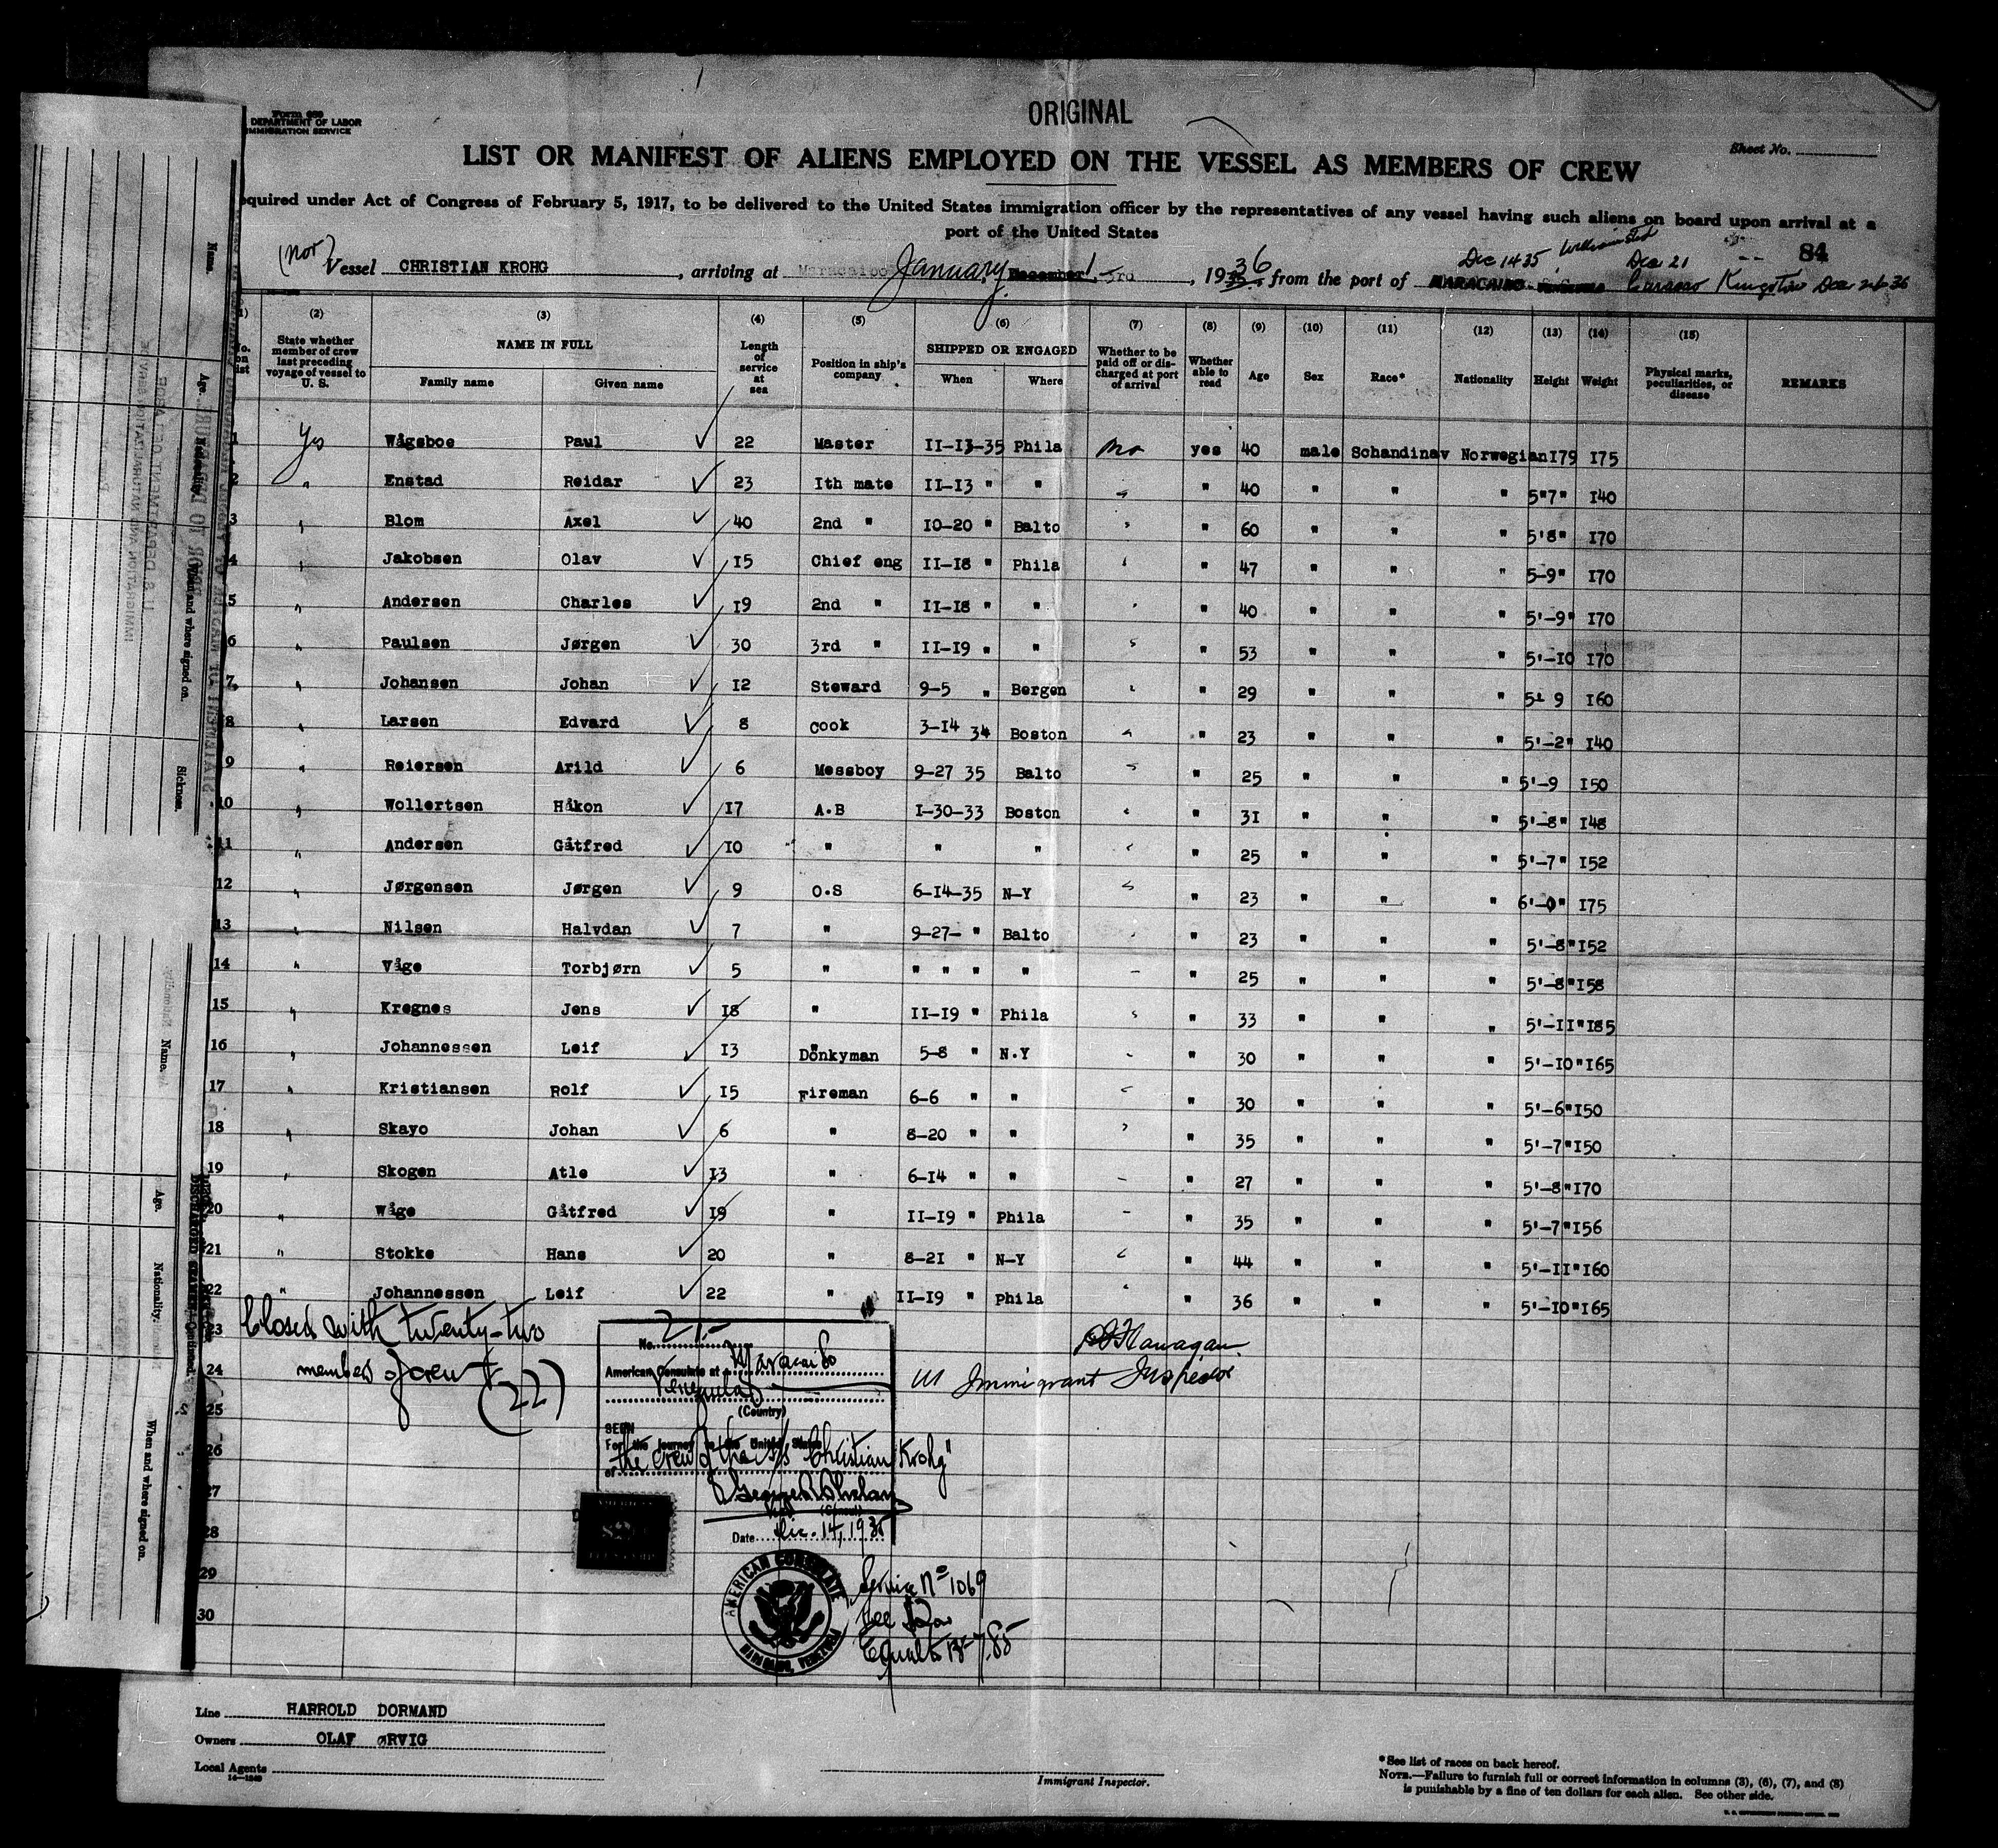 Form 689
DEPARTMENT OF LABOR
IMMIGRATION SERVICE
ORIGINAL
Sheet No.
LIST OR MANIFEST OF ALIENS EMPLOYED ON THE VESSEL AS MEMBERS OF CREW
equired under Act of Congress of February 5, 1917, to be delivered to the United States immigration officer by the representatives of any vessel having such aliens on board upon arrival at a
port of the United States
84
(nor) Vessel CHRISTIAN KROHG, arriving at Maracaibo January 1, 3rd, 1936 from the port of MARACAIBO Dec 14 35, Dec 21 Curacao Kingston Dec
(2) (3) (4) (5) (6) (7) (8) (9) (10) (11) (12) (13) (14) (15)
No. on list
State whether member of crew last preceding voyage of vessel to U. S.
NAME IN FULL
Family name Given name
Length of service at sea
Position in ship's company
SHIPPED OR ENGAGED
When Where
Whether to be paid off or discharged at port of arrival
Whether able to read
Age Sex Race* Nationality Height Weight
Physical marks, peculiarities, or disease
REMARKS
1 Yes Wågsboe Paul ✓ 22 Master II-I3-35 Phila no yes 40 male Schandinav Norwegian I79 I75
2 " Enstad Reidar ✓ 23 Ith mate II-I3 " " " " 40 " " " 5"7" I40
3 " Blom Axel ✓ 40 2nd " I0-20 " Balto " " 60 " " " 5'8" I70
4 " Jakobsen Olav ✓ I5 Chief eng II-I8 " Phila " " 47 " " " 5-9" I70
5 " Andersen Charles ✓ I9 2nd " II-I8 " " " " 40 " " " 5'-9" I70
6 " Paulsen Jørgen ✓ 30 3rd " II-I9 " " " " 53 " " " 5'-I0 I70
7 " Johansen Johan ✓ I2 Steward 9-5 " Bergen " " 29 " " " 5'- 9 I60
8 " Larsen Edvard ✓ 8 Cook 3-I4 34 Boston " " 23 " " " 5'-2" I40
9 " Reiersen Arild ✓ 6 Messboy 9-27 35 Balto " " 25 " " " 5'-9 I50
10 " Wollertsen Håkon ✓ I7 A.B I-30-33 Boston " " 3I " " " 5'-8" I48
11 " Andersen Gåtfred ✓ I0 " " " " " 25 " " " 5'-7" I52
12 " Jørgensen Jørgen ✓ 9 O.S 6-I4-35 N-Y " " 23 " " " 6'-0" I75
13 " Nilsen Halvdan ✓ 7 " 9-27- " Balto " " 23 " " " 5'-8" I52
14 " Våge Torbjørn ✓ 5 " " " " " - " 25 " " " 5'-8" I58
15 " Kregnes Jens ✓ I8 " II-I9 " Phila " " 33 " " " 5'-II" I85
16 " Johannessen Leif ✓ I3 Donkyman 5-8 " N.Y " " 30 " " " 5'-I0" I65
17 " Kristiansen Rolf ✓ I5 Fireman 6-6 " " " " 30 " " " 5'-6" I50
18 " Skayo Johan ✓ 6 " 8-20 " " " " 35 " " " 5'-7" I50
19 " Skogen Atle ✓ I3 " 6-I4 " " - " 27 " " " 5'-8" I70
20 " Wåge Gåtfred ✓ I9 " II-I9 " Phila - " 35 " " " 5'-7" I56
21 " Stokke Hans ✓ 20 " 8-2I " N-Y " " 44 " " " 5'-II" I60
22 " Johannessen Leif ✓ 22 " II-I9 " Phila " " 36 " " " 5'-I0" I65
23
24
25
26
27
28
29
30
Closed with twenty-two
members of crew
(22)
Flanagan
US Immigrant Inspector
No.
American Consulate at Maracaibo
Venezuela
(Country)
SEEN
For the journey to the United States
of the crew of the S/S "Christian Krohg"
Date Dec. 14, 1935
AMERICAN CONSULATE
MARACAIBO, VENEZUELA
Service No 1069
Equals Bs 7.85
Line HARROLD DORMAND
Owners OLAF ØRVIG
Local Agents
14-1240
Immigrant Inspector.
*See list of races on back hereof.
NOTE.—Failure to furnish full or correct information in columns (3), (6), (7), and (8)
is punishable by a fine of ten dollars for each alien. See other side.
Name.
Age.
Nationality.
When and where signed on.
Sickness.
Name.
Age.
Nationality.
When and where signed on.